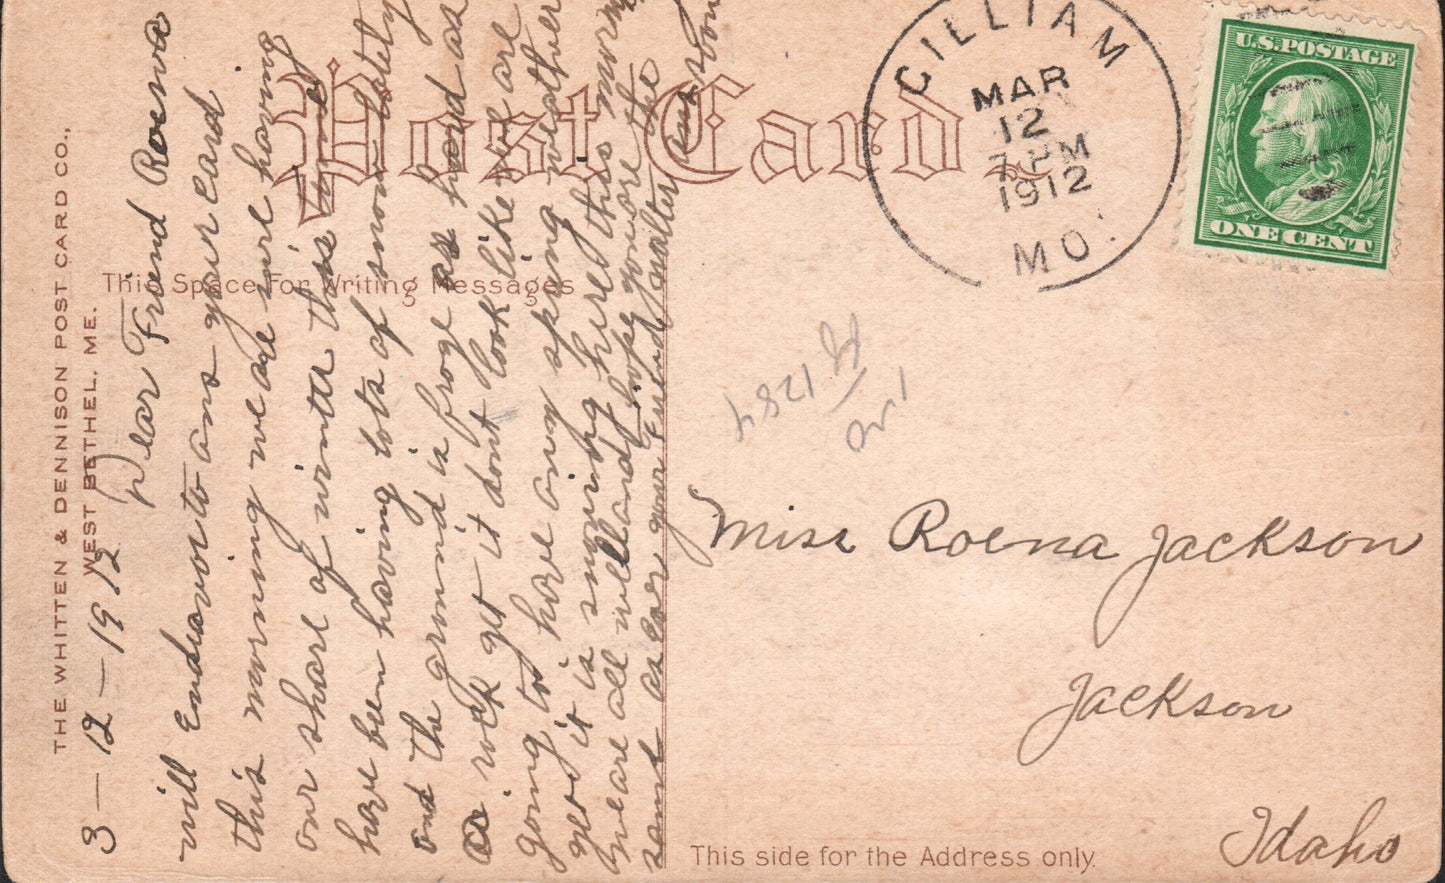 THE WHITTEN & DENNISON POST CARD CO.,
WEST BETHEL, ME.
Post Card
This Space For Writing Messages
3-12-1912
Dear Friend Roena
will Endeavor to ans your card
this morning we are sure having
our share of winter this
have been having lots of snow lately
and the ground is froze as hard as
a rock yet it dont look like we are
going to have any spring weather
yet it is snowing here this morning
we are all well and hope you are the
same as Ever your Friend Walter
ans soon
GILLIAM
MAR
12
7 PM
1912
MO.
U.S. POSTAGE
ONE CENT
1284
Miss Roena Jackson
Jackson
Idaho
This side for the Address only.